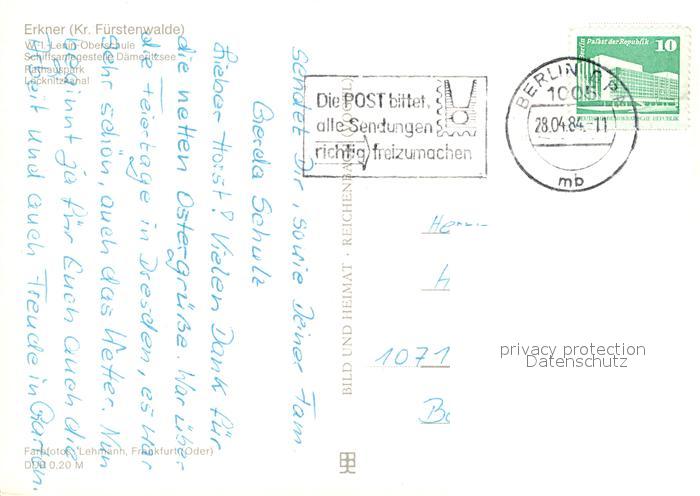 Erkner (Kr. Fürstenwalde)
W.-I.-Lenin-Oberschule
Schiffsanlegestelle Dämeritzsee
Rathauspark
Löcknitzkanal
Lieber Horst! Vielen Dank für
die netten Ostergrüße. War über
die Feiertage in Dresden, es war
sehr schön, auch das Wetter. Nun
beginnt ja für Euch auch die
Arbeit und auch Freude im Garten.
sendet Dir, sowie Deiner Fam.
Gerda Schulz
Farbfotos: Lehmann, Frankfurt (Oder)
DDR 0,20 M
BILD UND HEIMAT · REICHENBACH
Die POST bittet,
alle Sendungen
richtig freizumachen
BERLIN
1085
28.04.84.-11
mb
Berlin, Palast der Republik
10
1071
privacy protection
Datenschutz